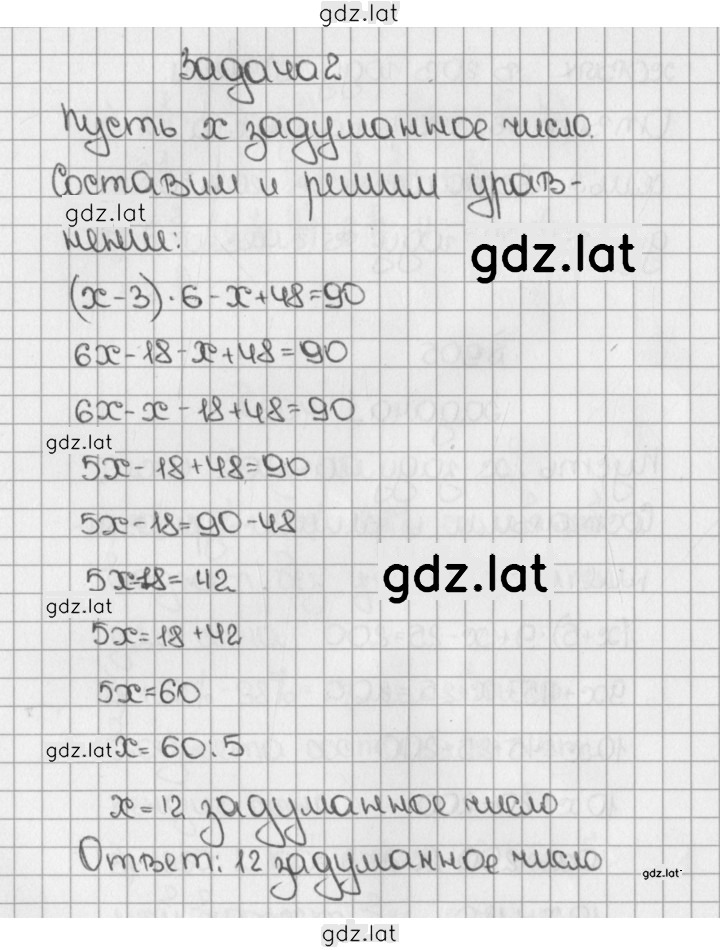 gdz.lat
Задача 2
Пусть x задуманное число.
Составим и решим урав-
gdz.lat
нение:
gdz.lat
(x-3)·6-x+48=90
6x-18-x+48=90
6x-x-18+48=90
gdz.lat
5x-18+48=90
5x-18=90-48
5x-18=42
gdz.lat
gdz.lat
5x=18+42
5x=60
gdz.lat x=60:5
x=12 задуманное число
Ответ: 12 задуманное число
gdz.lat
gdz.lat